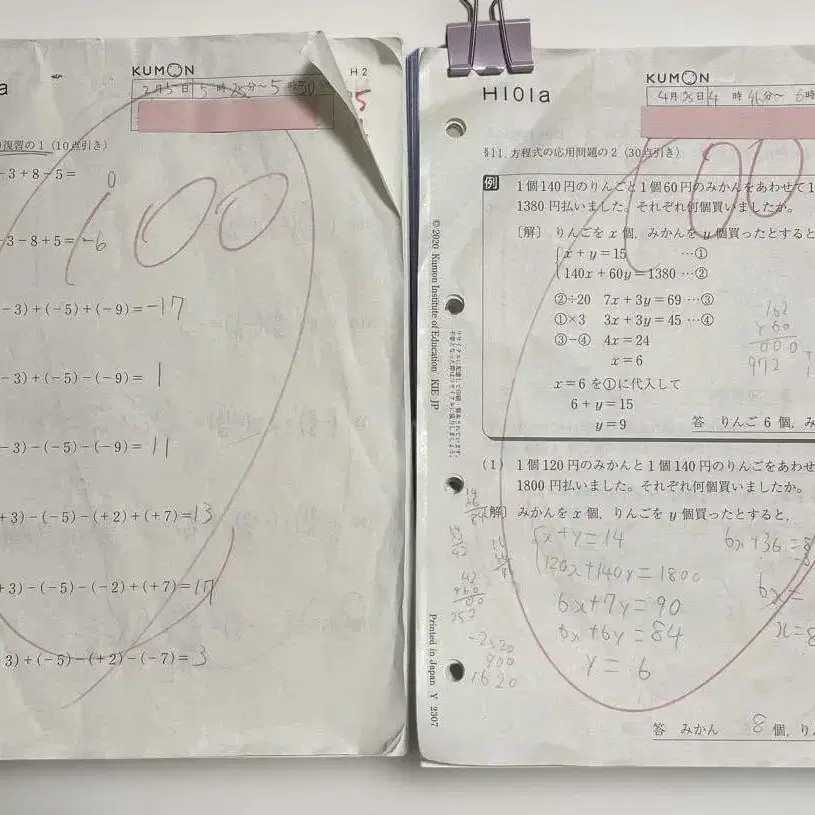 a
KUMON
H2
2月5日5時25分〜5時30
復習の1 (10点引き)
100
-3+8-5= 0
-3-8+5= -6
-3)+(-5)+(-9)= -17
-3)+(-5)-(-9)= 1
-3)-(-5)-(-9)= 11
+3)-(-5)-(+2)+(+7)=13
+3)-(-5)-(-2)+(+7)=17
3)+(-5)-(+2)-(-7)=3
H101a
KUMON
4月25日4時46分〜6時
100
§11. 方程式の応用問題の2 (30点引き)
例
1個140円のりんごと1個60円のみかんをあわせて1
1380円払いました。それぞれ何個買いましたか。
〔解〕 りんごをx個, みかんをy個買ったとすると
x+y=15 …①
140x+60y=1380 …②
②÷20 7x+3y=69 …③
①×3 3x+3y=45 …④
③-④ 4x=24
x=6
x=6を①に代入して
6+y=15
y=9
答 りんご6個, み
162
×60
000
972
(1) 1個120円のみかんと1個140円のりんごをあわせ
1800円払いました。それぞれ何個買いましたか。
〔解〕 みかんをx個, りんごをy個買ったとすると,
x+y=14
120x+140y=1800
6x+7y=90
6x+6y=84
y=6
6x+36=8
6x=
x=8
84
42
252
-2520
900
1620
答 みかん 8 個, りん
© 2020 Kumon Institute of Education KIE JP
Printed in Japan Y 2307